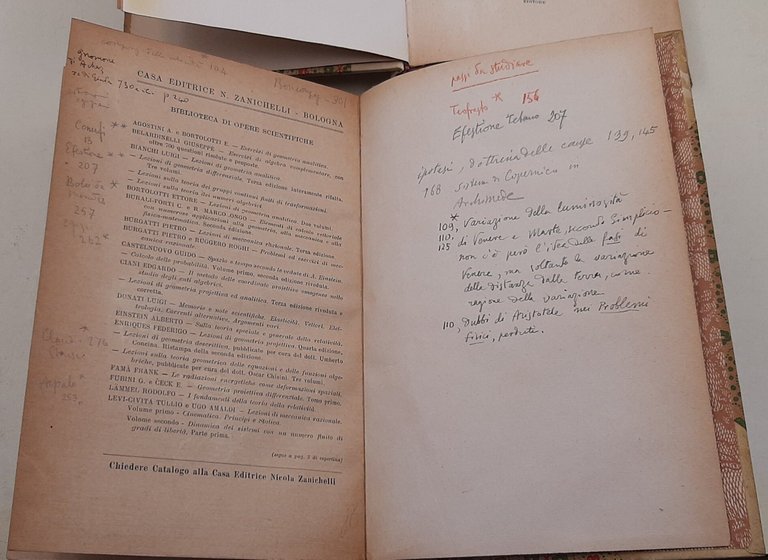 EDITORE
gnomone
di Achaz
730 a. C. p. 240
CASA EDITRICE N. ZANICHELLI - BOLOGNA
BIBLIOTECA DI OPERE SCIENTIFICHE
AGOSTINI A. e BORTOLOTTI E. — Esercizi di geometria analitica.
BELARDINELLI GIUSEPPE — Esercizi di algebra complementare, con
oltre 700 questioni risolute e proposte.
BIANCHI LUIGI — Lezioni di geometria analitica.
— Lezioni di geometria differenziale. Terza edizione interamente rifatta.
Tre volumi.
— Lezioni sulla teoria dei gruppi continui finiti di trasformazioni.
— Lezioni sulla teoria dei numeri algebrici.
BORTOLOTTI ETTORE — Lezioni di geometria analitica. Due volumi.
BURALI-FORTI C. e R. MARCOLONGO — Elementi di calcolo vettoriale
con numerose applicazioni alla geometria, alla meccanica e alla
fisica-matematica. Seconda edizione.
BURGATTI PIETRO — Lezioni di meccanica razionale. Terza edizione.
BURGATTI PIETRO e RUGGERO ROGHI — Problemi ed esercizi di mec-
canica razionale.
CASTELNUOVO GUIDO — Spazio e tempo secondo le vedute di A. Einstein.
— Calcolo delle probabilità. Volume primo, seconda edizione riveduta.
CIANI EDGARDO — Il metodo delle coordinate proiettive omogenee nello
studio degli enti algebrici.
— Lezioni di geometria proiettiva ed analitica. Terza edizione riveduta e
corretta.
DONATI LUIGI — Memorie e note scientifiche. Elasticità, Vettori, Elet-
trologia, Correnti alternative, Argomenti vari
EINSTEIN ALBERTO — Sulla teoria speciale e generale della relatività.
ENRIQUES FEDERIGO — Lezioni di geometria proiettiva. Quarta edizione.
— Lezioni di geometria descrittiva, pubblicate per cura del dott. Umberto
Concina. Ristampa della seconda edizione.
— Lezioni sulla teoria geometrica delle equazioni e delle funzioni alge-
briche, pubblicate per cura del dott. Oscar Chisini. Tre volumi.
FAMÀ FRANK — Le radiazioni energetiche come deformazioni spaziali.
FUBINI G. e ČECK E. — Geometria proiettiva differenziale. Tomo primo.
LÄMMEL RODOLFO — I fondamenti della teoria della relatività.
LEVI-CIVITA TULLIO e UGO AMALDI — Lezioni di meccanica razionale.
Volume primo - Cinematica. Principi e Statica
Volume secondo - Dinamica dei sistemi con un numero finito di
gradi di libertà, Parte prima.
(segue a pag. 3 di copertina)
Chiedere Catalogo alla Casa Editrice Nicola Zanichelli
207
267
262
276
253
passi da studiare
Teofrasto * 156
Efestione Tebano 207
ipotesi, dottrina delle cause 139, 145
168 sistema di Copernico in
Archimede
*
109, Variazione della luminosità
110, di Venere e Marte, secondo Simplicio -
125 non c'è però l'idea delle fasi di
Venere, ma soltanto la variazione
della distanza dalla terra, come
ragione della variazione
110, Dubbi di Aristotele nei Problemi
fisici, perduti.